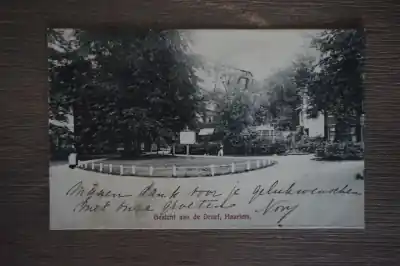 Mijnen dank voor je gelukwenschen
Met onze groeten
Gezicht aan de Dreef, Haarlem.